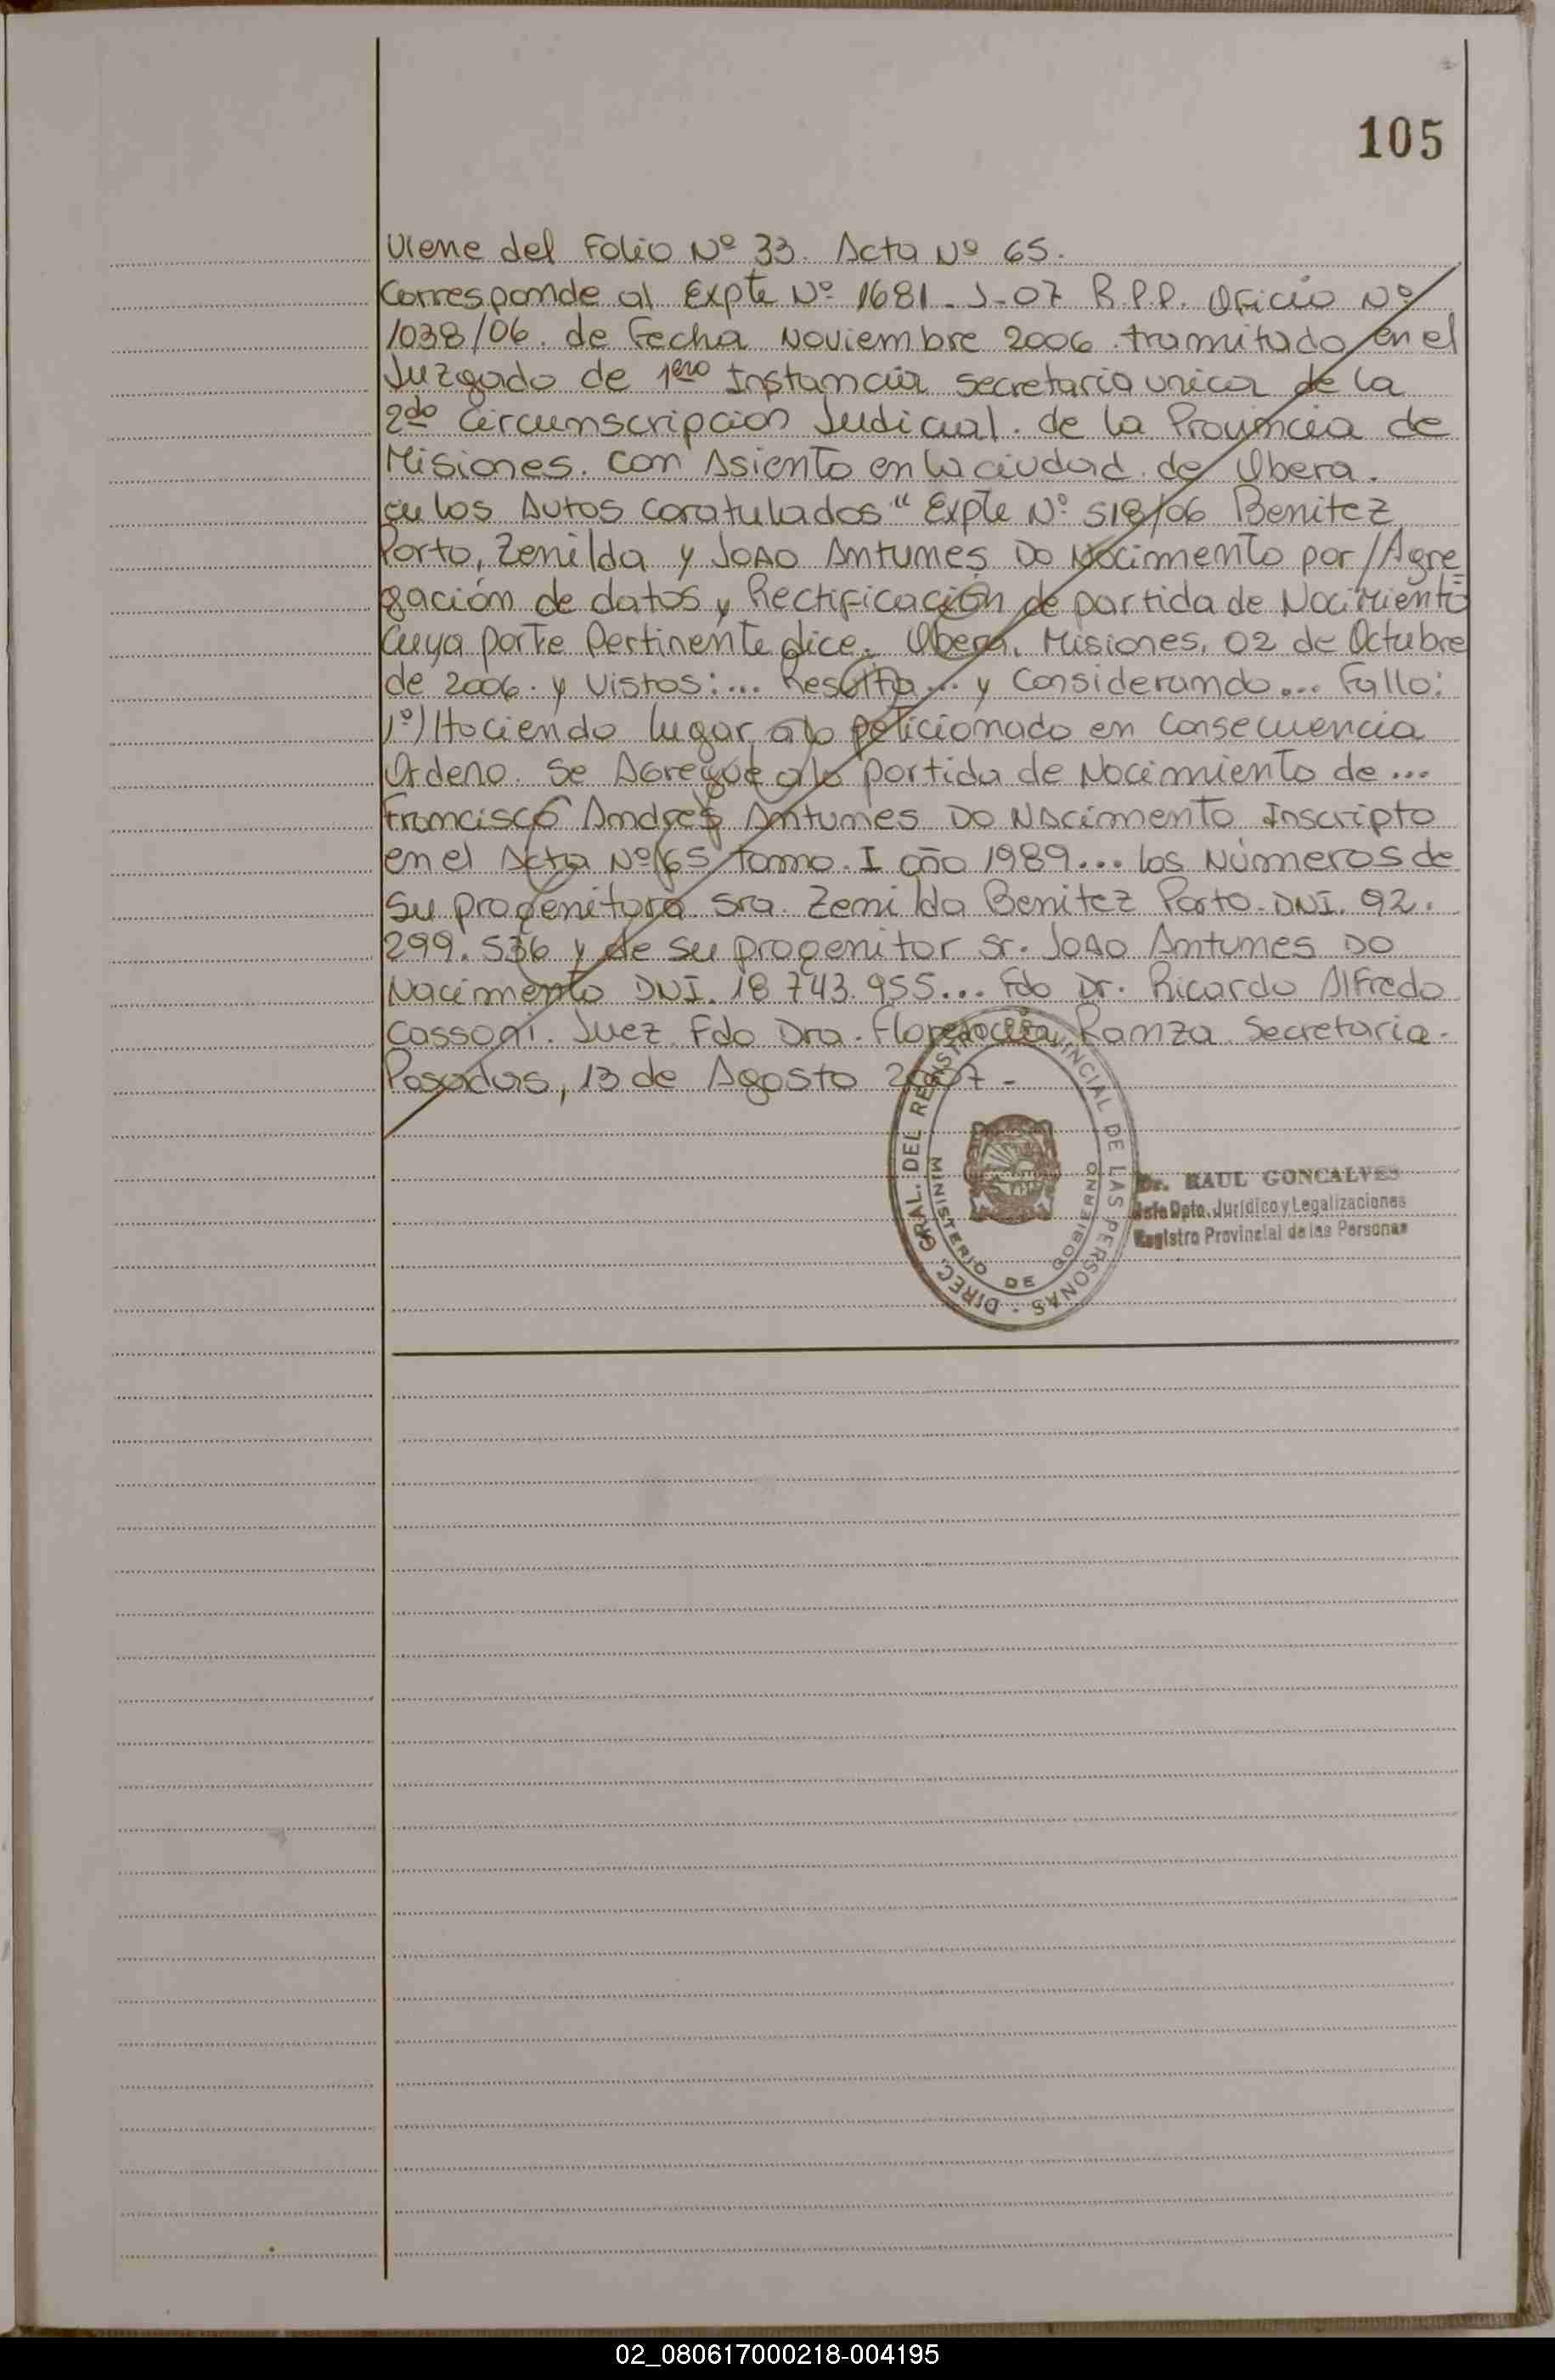 105
Viene del Folio Nº 33. Acta Nº 65.
Corresponde al Expte Nº 1681-J-07 R.P.P. Oficio Nº
1038/06. de Fecha Noviembre 2006 tramitado en el
Juzgado de 1ero Instancia Secretaria unica de la
2do Circunscripcion Judicial. de la Provincia de
Misiones. con Asiento en la ciudad de Obera.
en los Autos caratulados "Expte Nº 518/06 Benitez
Porto, Zenilda y JOAO Antunes DO Nacimento por/Agre
gación de datos y Rectificación de partida de Nacimiento
Cuya parte Pertinente dice. Obera. Misiones, 02 de Octubre
de 2006. y Vistos:... Resulta... y Considerando... Fallo:
1º) Haciendo lugar a lo peticionado en consecuencia
Ordeno. Se Agregue a la partida de Nacimiento de...
Francisco Andres Antunes DO NAcimento Inscripto
en el Acta Nº 65 tomo. I año 1989... los Números de
Su progenitora Sra. Zenilda Benitez Porto. DNI. 92.
299.536 y de su progenitor Sr. JOAO Antunes DO
Nacimento DNI. 18 743.955... Fdo Dr. Ricardo Alfredo
Cassoni. Juez. Fdo Dra. Florencia Ranza. Secretaria.
Posadas, 13 de Agosto 2007.-
DIREC. GRAL. DEL REGISTRO PROVINCIAL DE LAS PERSONAS -
MINISTERIO DE GOBIERNO
Dr. RAUL GONCALVES
Jefe Dpto. Jurídico y Legalizaciones
Registro Provincial de las Personas
02_080617000218-004195